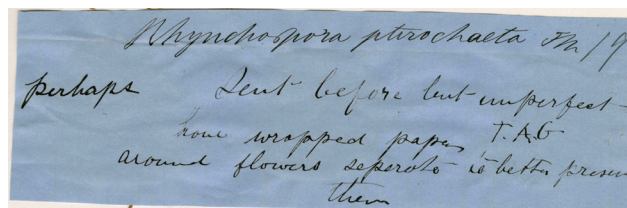 Rhynchospora pterochaeta FM / 9
perhaps Sent before but imperfect
have wrapped paper T.A.G
around flowers seperate to better preser
them